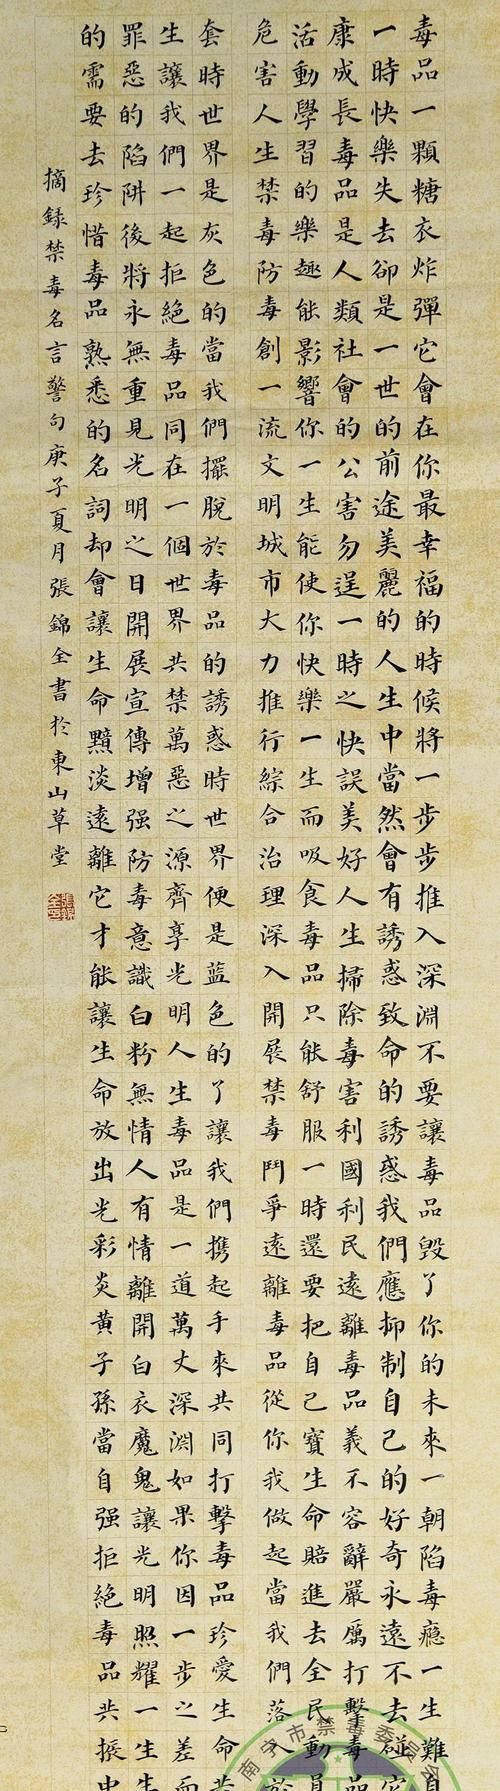 毒品一顆糖衣炸彈它會在你最幸福的時候將一步步推入深淵不要讓毒品毀了你的未來一朝陷毒瘾一生難自
一時快樂失去卻是一世的前途美麗的人生中當然會有誘惑致命的誘惑我們應抑制自己的好奇永遠不去碰它
康成長毒品是人類社會的公害勿逞一時之快誤美好人生掃除毒害利國利民遠離毒品義不容辭嚴厲打擊毒品
活動學習的樂趣能影響你一生能使你快樂一生而吸食毒品只能舒服一時還要把自己寶生命賠進去全民動員
危害人生禁毒防毒創一流文明城市大力推行綜合治理深入開展禁毒鬥爭遠離毒品從你我做起當我們落入於
套時世界是灰色的當我們擺脫於毒品的誘惑時世界便是藍色的了讓我們携起手來共同打擊毒品珍愛生命
生讓我們一起拒絕毒品同在一個世界共禁萬惡之源齊享光明人生毒品是一道萬丈深渊如果你因一步之差而
罪惡的陷阱後將永無重見光明之日開展宣傳增强防毒意識白粉無情人有情離開白衣魔鬼讓光明照耀一生生
的需要去珍惜毒品熟悉的名詞却會讓生命黯淡遠離它才能讓生命放出光彩炎黄子孫當自强拒絶毒品共振中
摘録禁毒名言警句庚子夏月張錦全書於東山草堂
南宁市禁毒委员会